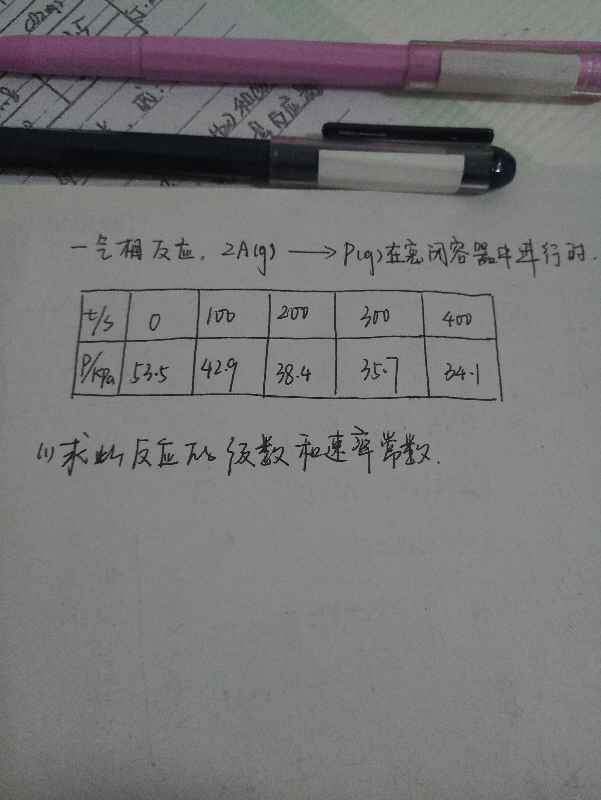 一气相反应，2A(g) → P(g)在密闭容器中进行时.
t/s 0 100 200 300 400
P/kPa 53.5 42.9 38.4 35.7 34.1
(1)求此反应的级数和速率常数.